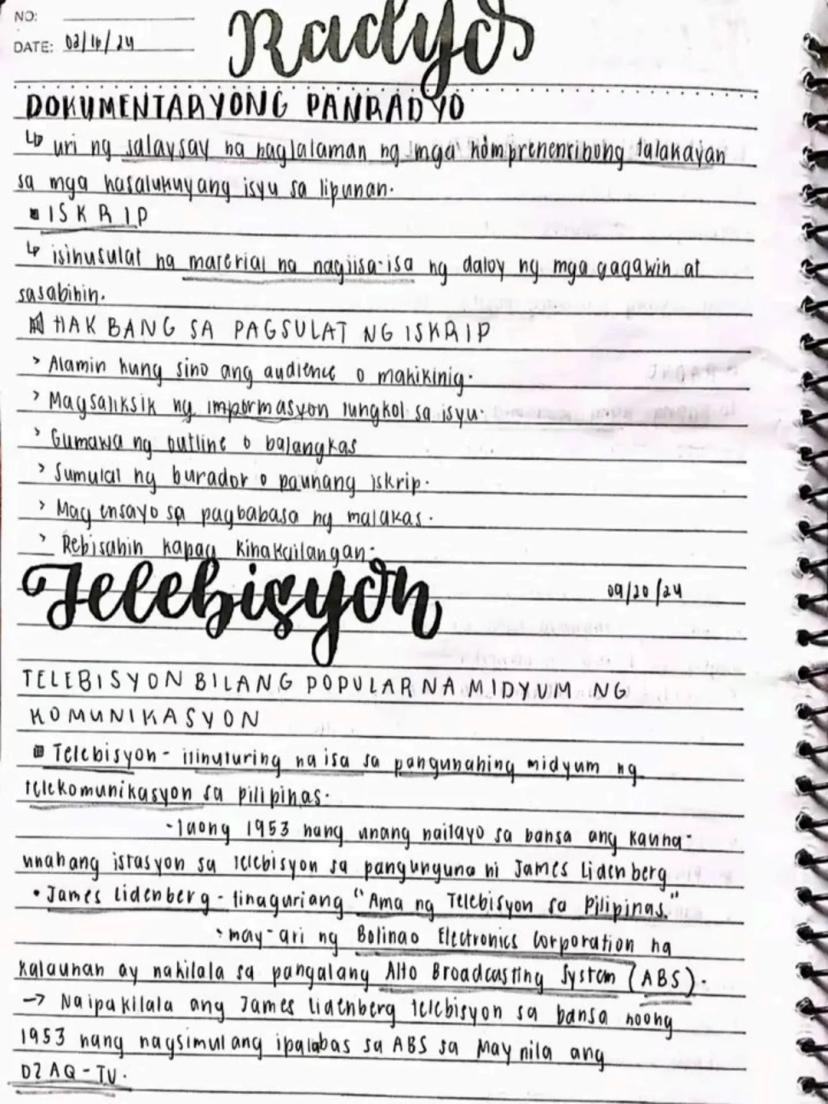 NO:
Radyo
DATE: 03/16/24
DOKUMENTARYONG PANRADYO
↳ uri ng salaysay na naglalaman ng mga komprehensibong talakayan
sa mga kasalukuyang isyu sa lipunan.
▪ ISKRIP
↳ isinusulat na material na nagiisa-isa ng daloy ng mga gagawin at
sasabihin.
HAKBANG SA PAGSULAT NG ISKRIP
> Alamin kung sino ang audience o makikinig.
> Magsaliksik ng impormasyon tungkol sa isyu.
> Gumawa ng outline o balangkas
> Sumulat ng burador o paunang iskrip.
> Mag ensayo sa pagbabasa ng malakas.
> Rebisahin kapag kinakailangan.
Telebisyon 09/20/24
TELEBISYON BILANG POPULAR NA MIDYUM NG
KOMUNIKASYON
▪ Telebisyon - itinuturing na isa sa pangunahing midyum ng
telekomunikasyon sa pilipinas.
- taong 1953 nang unang naitayo sa bansa ang kauna-
unahang istasyon sa telebisyon sa pangunguna ni James Lidenberg
• James Lidenberg - tinaguriang "Ama ng Telebisyon sa Pilipinas."
> may-ari ng Bolinao Electronics Corporation na
kalaunan ay nakilala sa pangalang Alto Broadcasting System (ABS).
→ Naipakilala ang James Lidenberg telebisyon sa bansa noong
1953 nang nagsimulang ipalabas sa ABS sa Maynila ang
DZAQ-TV.